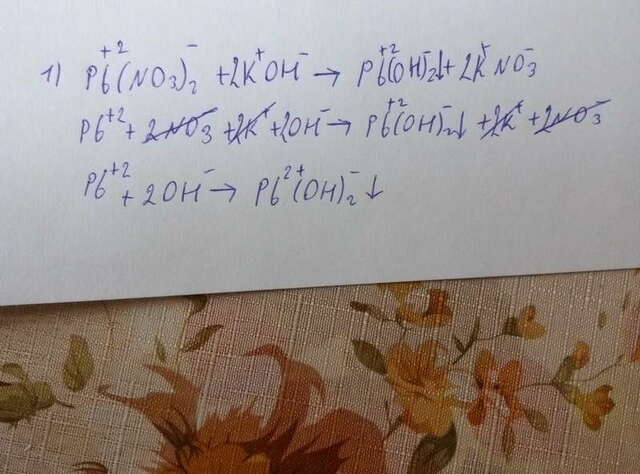 1) Pb⁺²(NO₃)₂⁻ + 2K⁺OH⁻ → Pb⁺²(OH)₂⁻↓ + 2K⁺NO₃⁻
Pb⁺² + 2NO₃⁻ + 2K⁺ + 2OH⁻ → Pb⁺²(OH)₂⁻↓ + 2K⁺ + 2NO₃⁻
Pb⁺² + 2OH⁻ → Pb²⁺(OH)₂⁻↓